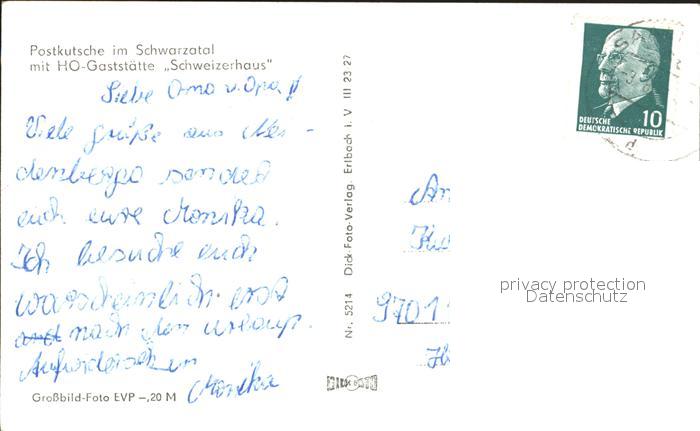 Postkutsche im Schwarzatal
mit HO-Gaststätte „Schweizerhaus"
Liebe Oma u. Opa!
Viele grüße aus
sendet
euch eure Monika.
Ich besuche euch
warscheinlich erst
nach den urlaup.
Monika
Großbild-Foto EVP –,20 M
Nr. 5214 Dick-Foto-Verlag, Erlbach i. V III 23 27
An
9701
privacy protection
Datenschutz
10
DEUTSCHE
DEMOKRATISCHE REPUBLIK